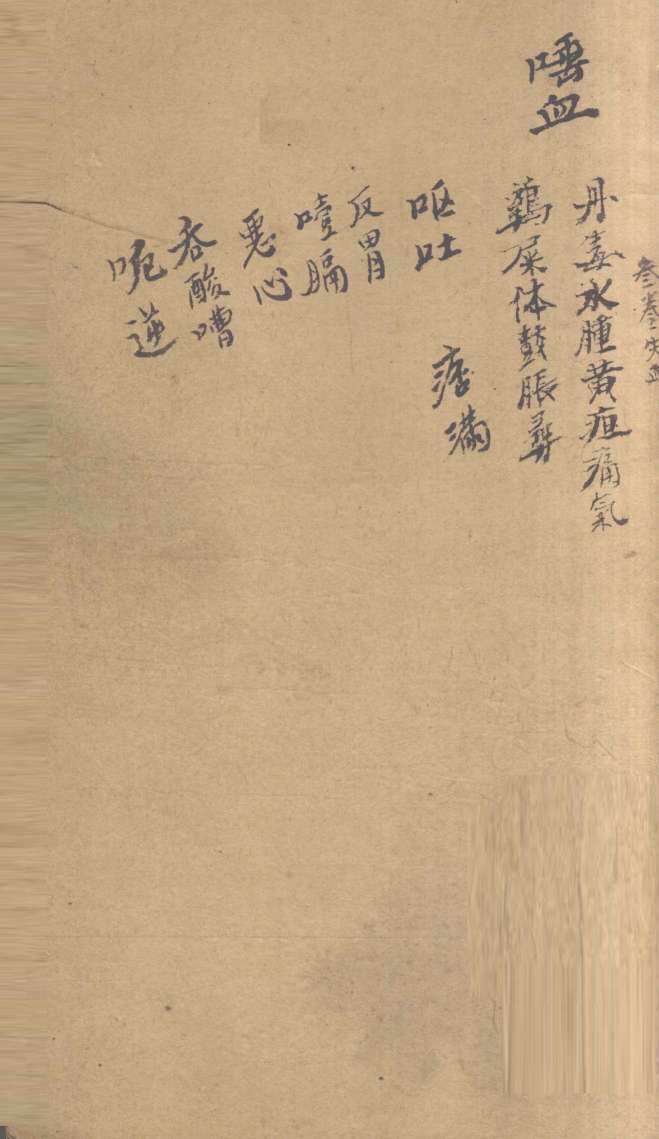 叁卷失血
丹毒水腫黄疸痛氣
唾血
鷄屎体鼓脹
呕吐 痞滿
反胃
噎膈
悪心
吞酸嘈
呃逆